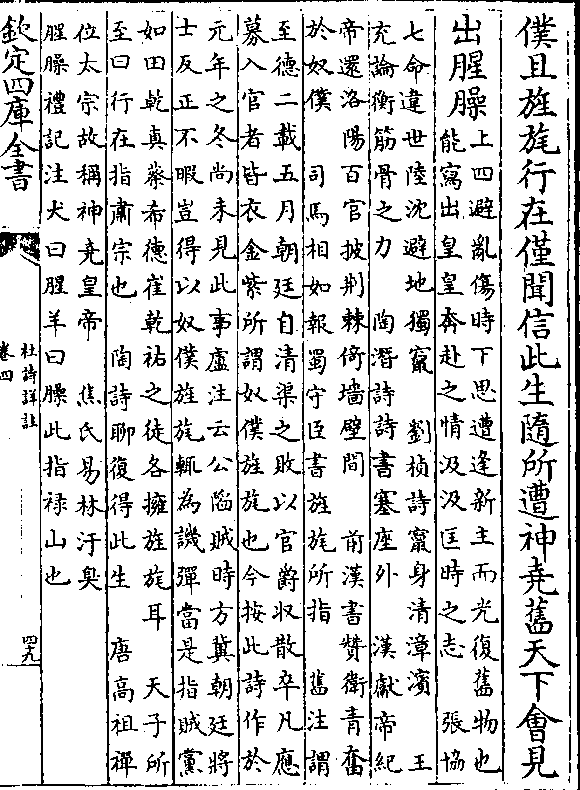 僕且旌旄行在僅聞信此生隨所遭神堯舊天下會見
出腥臊上四避亂傷時下思遭逢新主而光復舊物也
能寫出皇皇奔赴之情汲汲匡時之志　張協
七命違世陸沈避地獨竄　劉楨詩竄身清漳濱　王
充論衡筋骨之力　陶潛詩詩書塞座外　漢獻帝紀
帝還洛陽百官披荆棘倚墻壁間　前漢書贊衛青奮
於奴僕　司馬相如報蜀守臣書旌旄所指　舊注謂
至德二載五月朝廷自清渠之敗以官爵收散卒凡應
募入官者皆衣金紫所謂奴僕旌旄也今按此詩作於
元年之冬尚未見此事盧注云公陷賊時方冀朝廷將
士反正不暇豈得以奴僕旌旄輒為譏彈當是指賊黨
如田乾真蔡希德崔乾祐之徒各擁旌旄耳　天子所
至曰行在指肅宗也　陶詩聊復得此生　唐高祖禪
位太宗故稱神堯皇帝　焦氏易林汙臭
腥臊禮記注犬曰腥羊曰臊此指祿山也
欽定四庫全書
杜詩詳註
卷四
四九